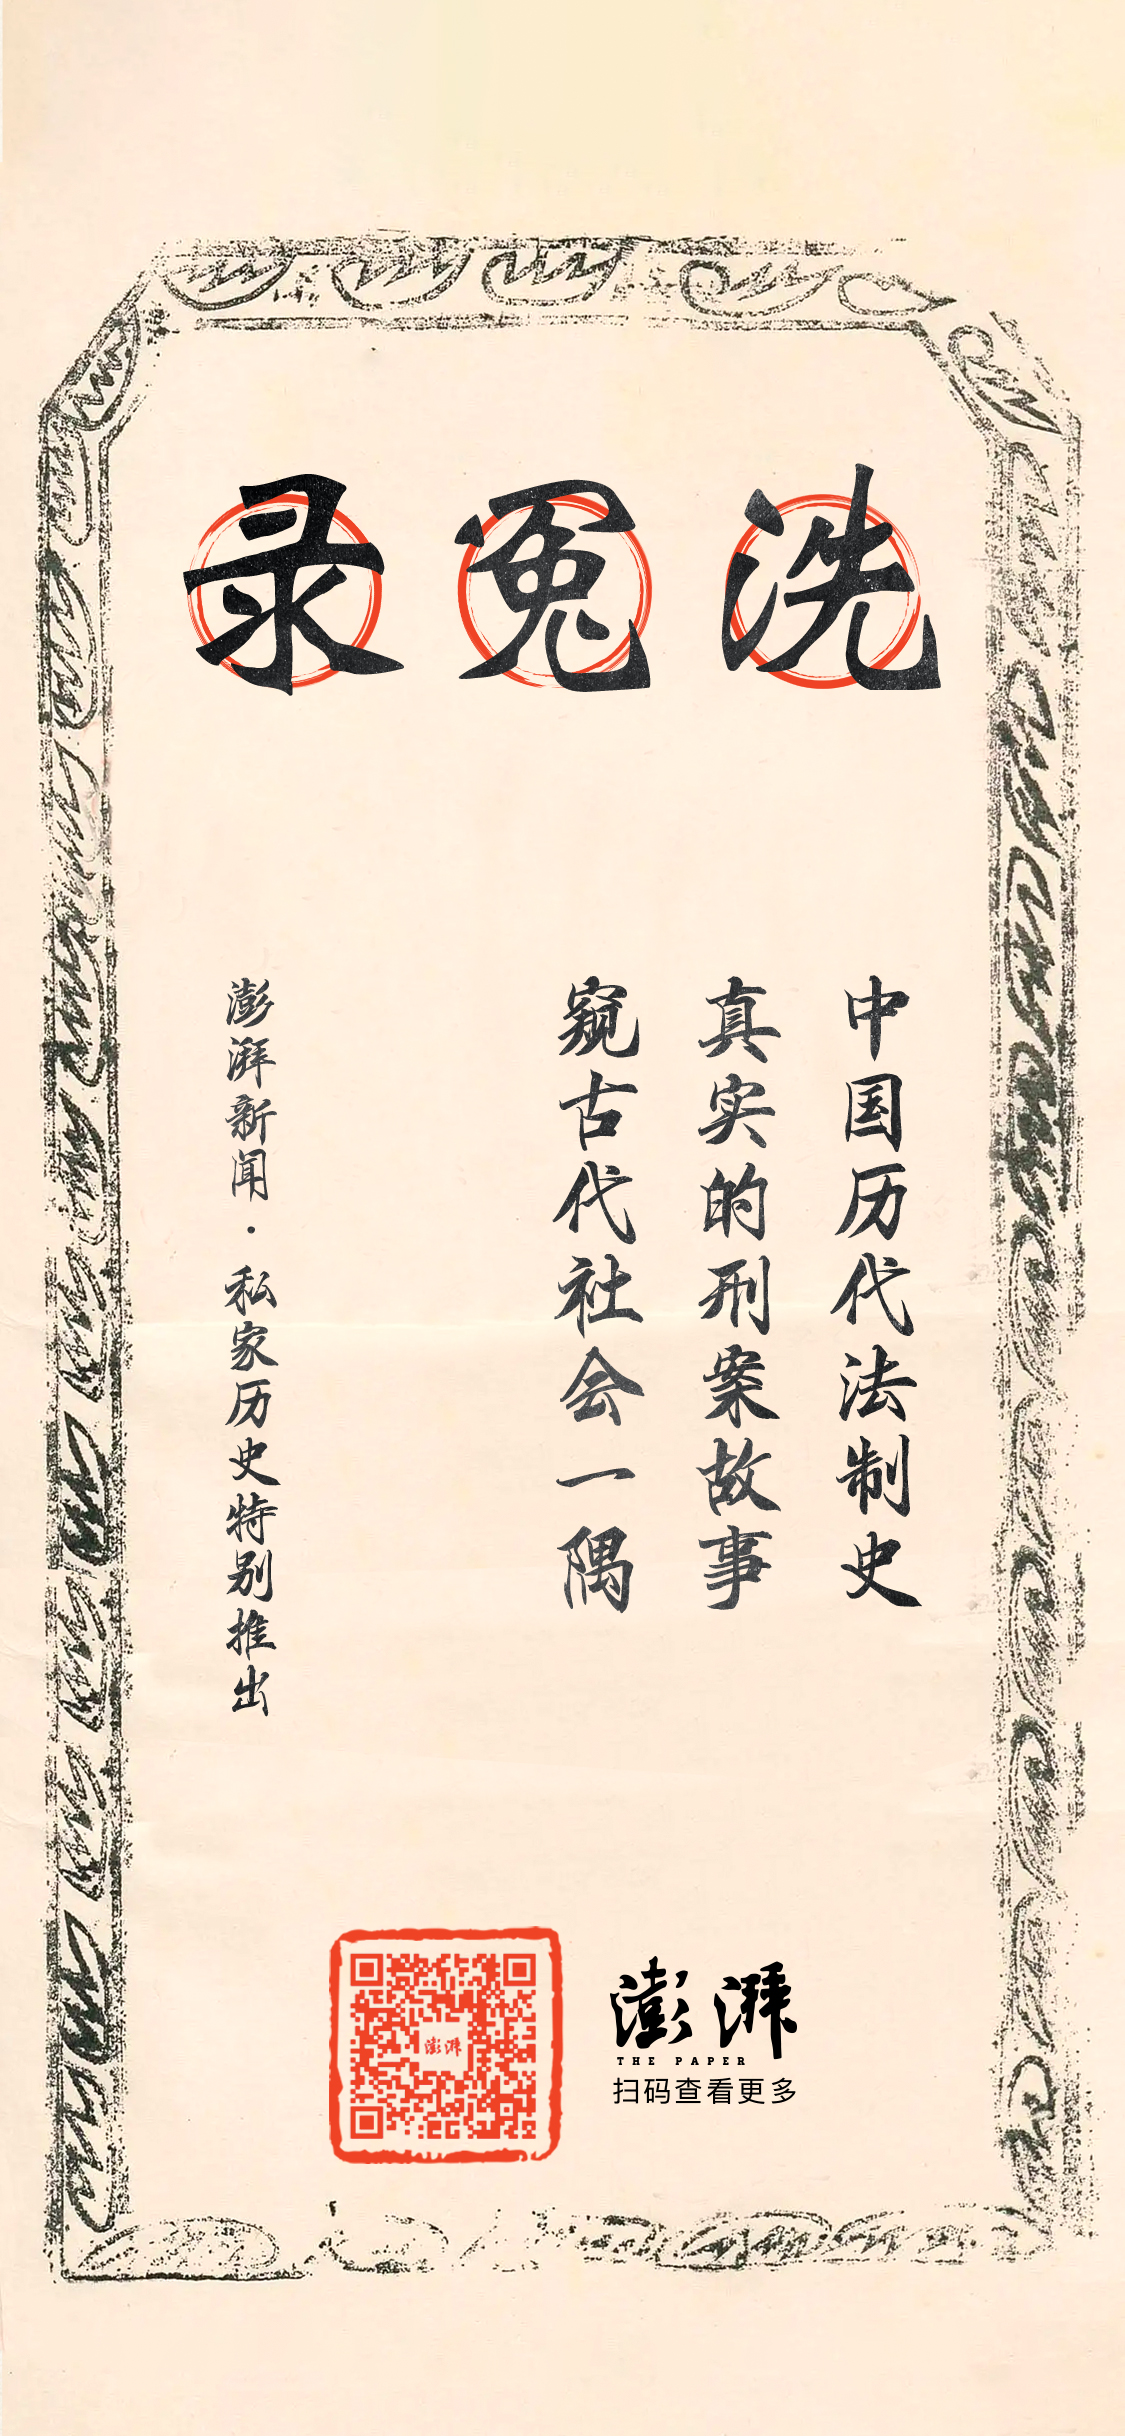 洗冤录
中国历代法制史
真实的刑案故事
窥古代社会一隅
澎湃新闻·私家历史特别推出
澎湃
澎湃
THE PAPER
扫码查看更多